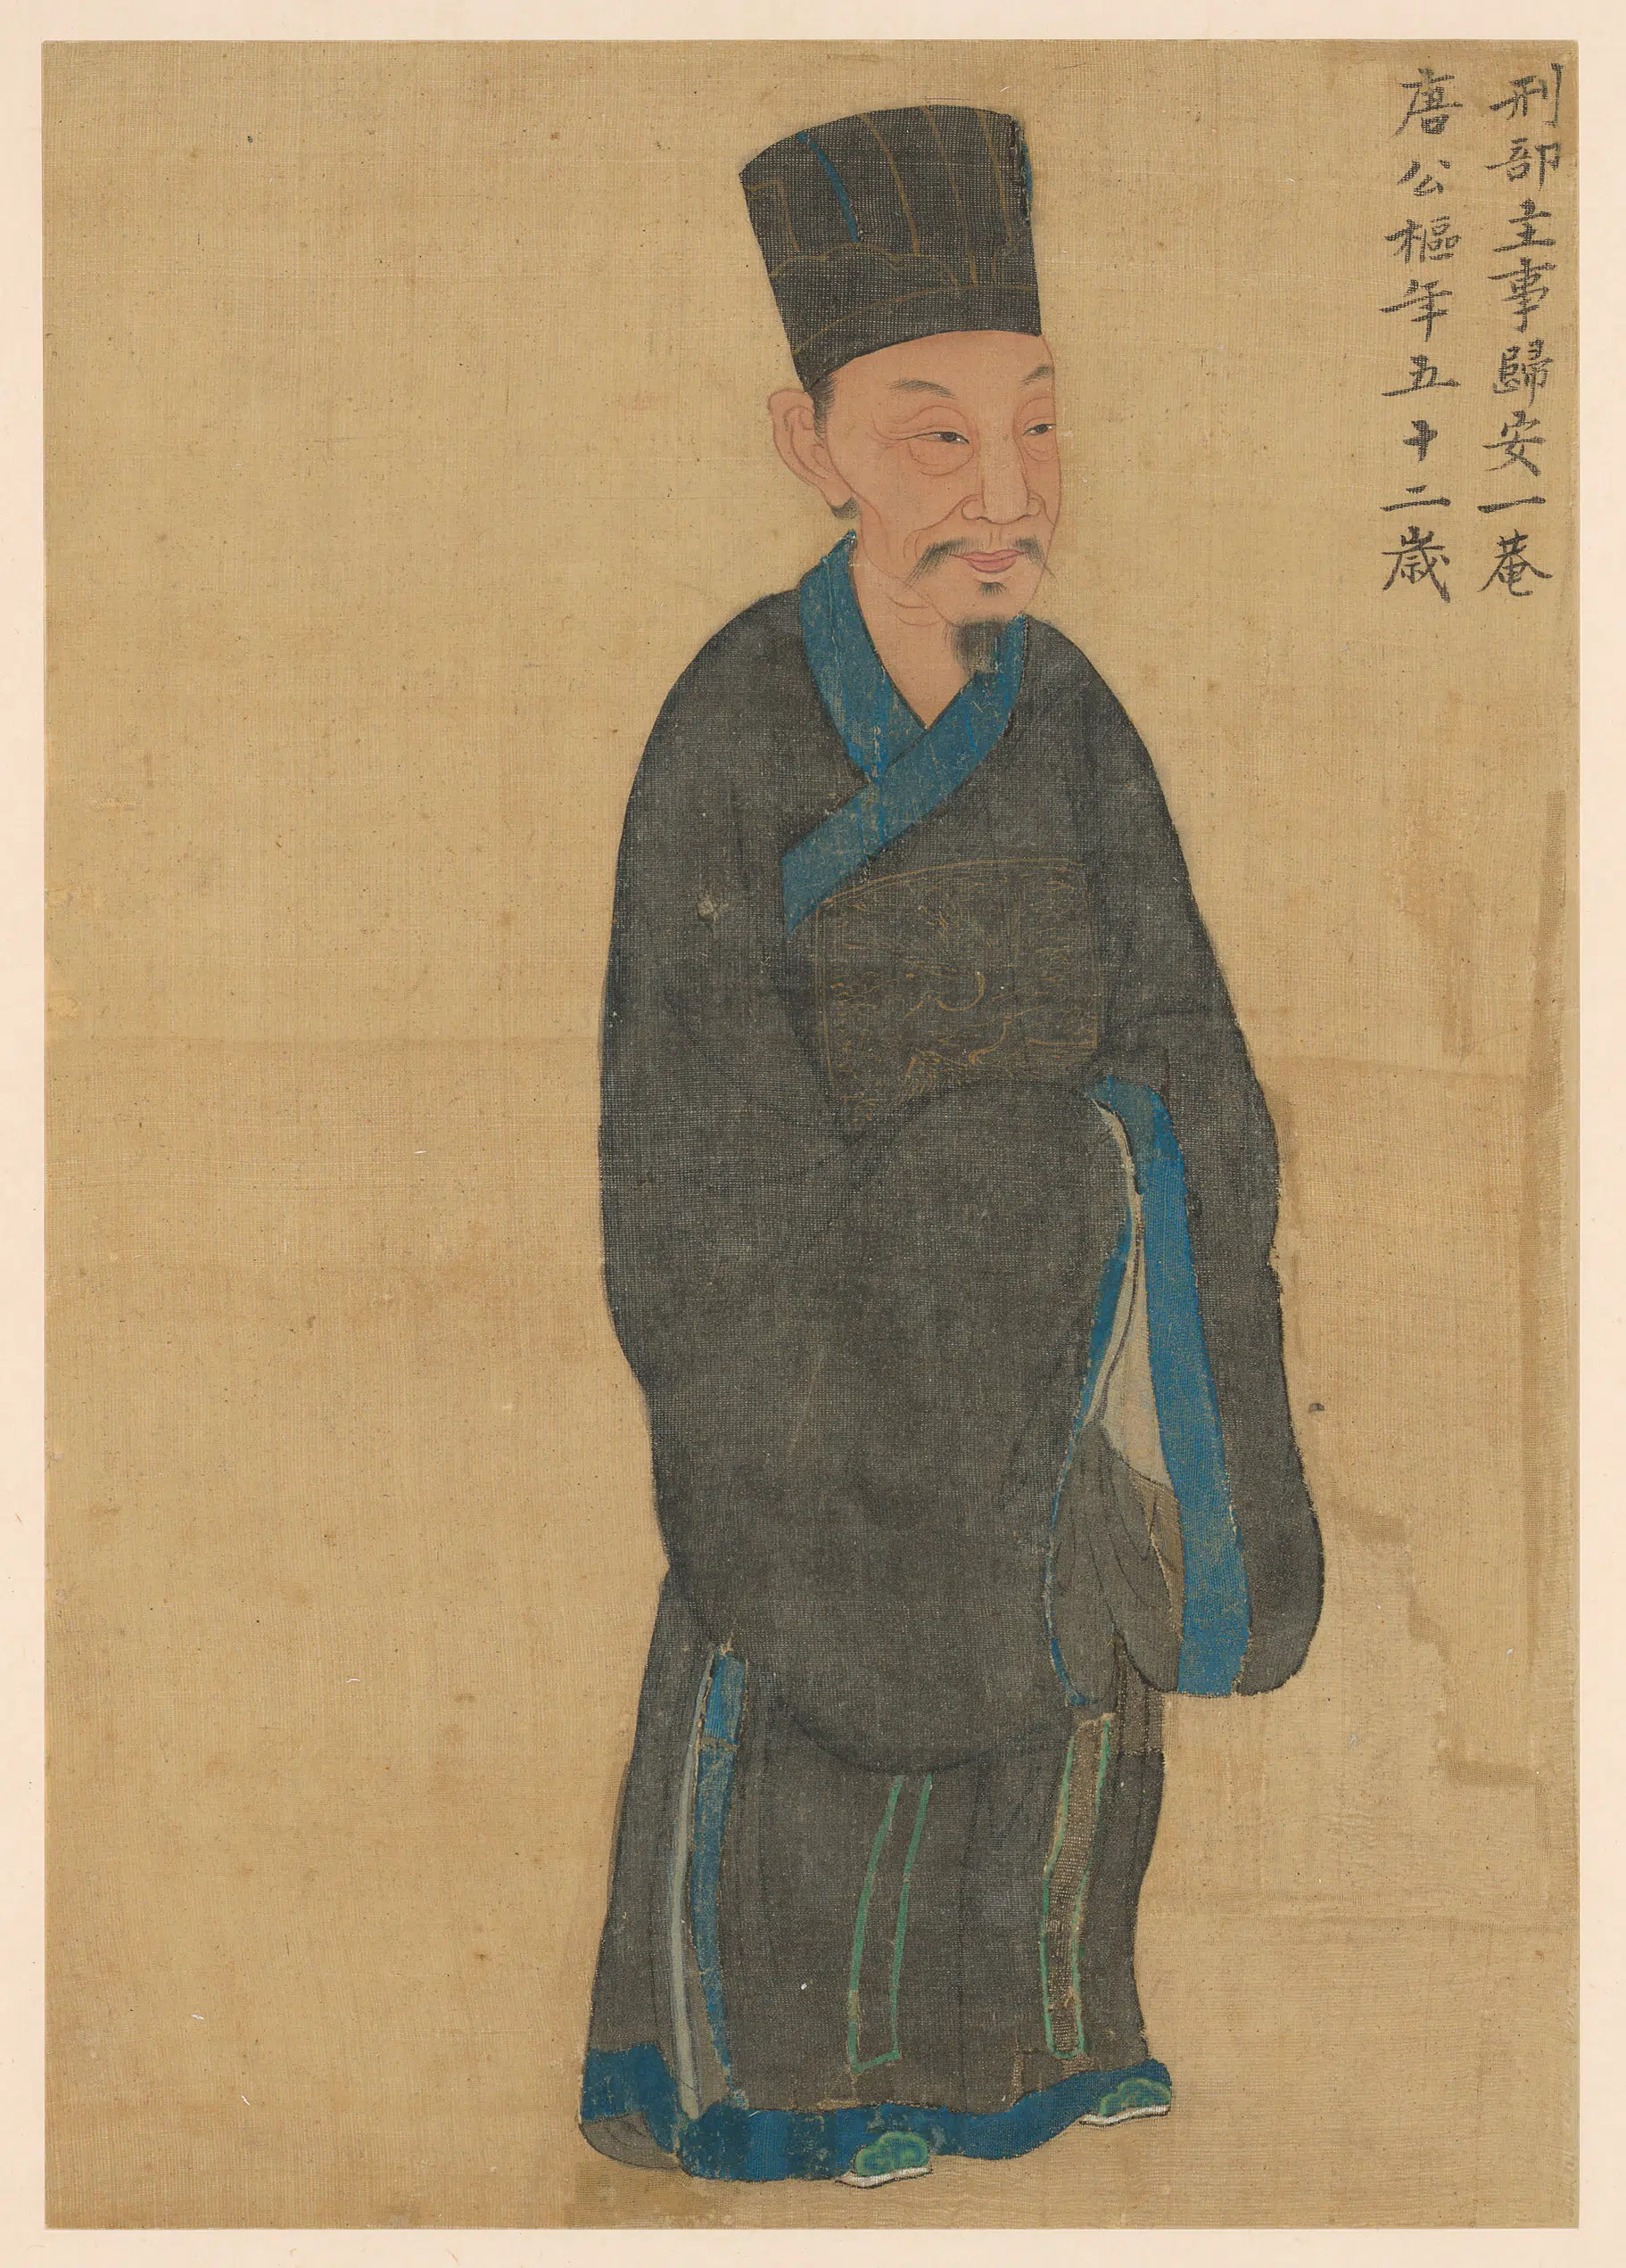 刑部主事歸安一菴
唐公樞年五十二歲